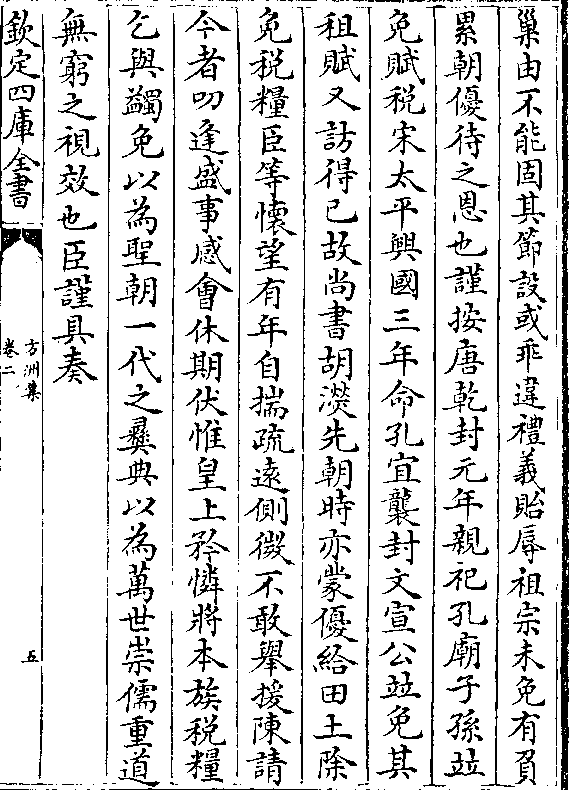 巢由不能固其節設或乖違禮義貽辱祖宗未免有負
累朝優待之恩也謹按唐乾封元年親祀孔廟子孫竝
免賦税宋太平興國三年命孔宜襲封文宣公竝免其
租賦又訪得已故尚書胡濙先朝時亦蒙優給田土除
免税糧臣等懐望有年自揣疏逺側微不敢舉援陳請
今者叨逢盛事感會休期伏惟皇上矜憐將本族税糧
乞與蠲免以為聖朝一代之彝典以為萬世崇儒重道
無窮之視效也臣謹具奏
欽定四庫全書
方洲集
卷二
五